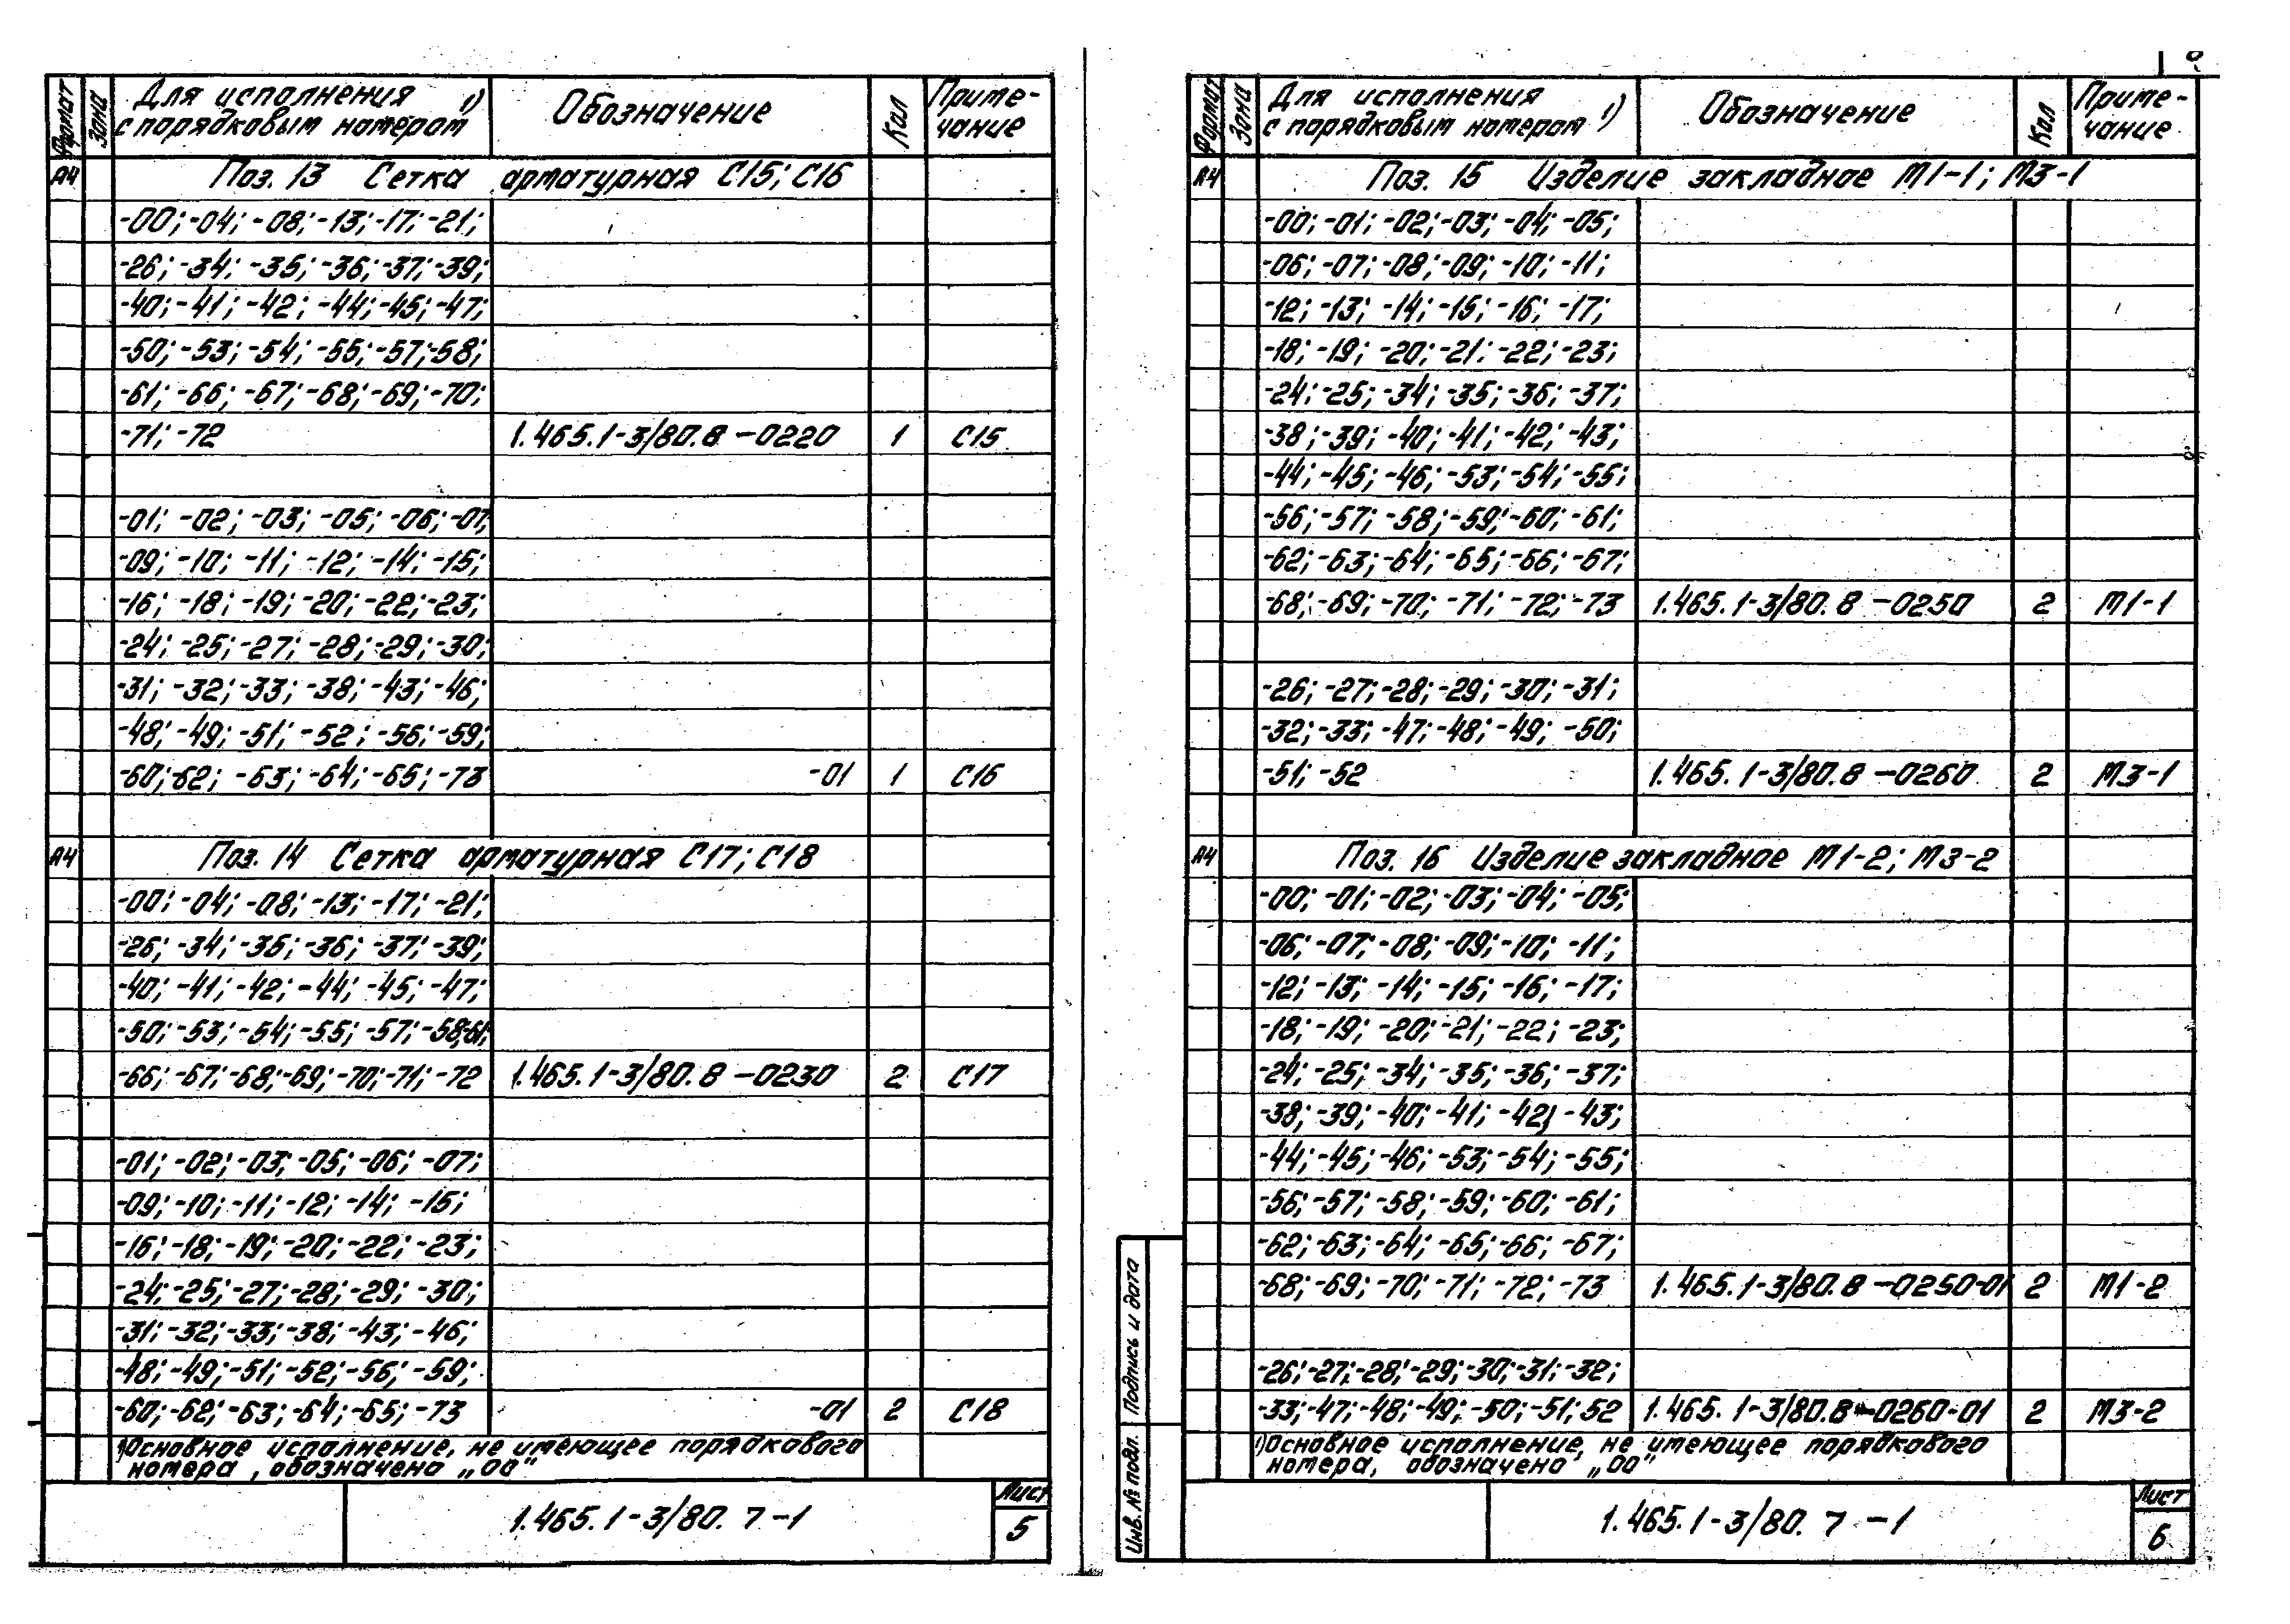 Формат Зона Для исполнения с порядковым номером 1) Обозначение Кол Приме-чание
А4 Поз. 13 Сетка арматурная С15; С16
-00; -04; -08; -13; -17; -21;
-26; -34; -35; -36; -37; -39;
-40; -41; -42; -44; -45; -47;
-50; -53; -54; -55; -57; -58;
-61; -66; -67; -68; -69; -70;
-71; -72 1.465.1-3/80.8 -0220 1 С15
-01; -02; -03; -05; -06; -07;
-09; -10; -11; -12; -14; -15;
-16; -18; -19; -20; -22; -23;
-24; -25; -27; -28; -29; -30;
-31; -32; -33; -38; -43; -46;
-48; -49; -51; -52; -56; -59;
-60; -62; -63; -64; -65; -73 -01 1 С16
А4 Поз. 14 Сетка арматурная С17; С18
-00; -04; -08; -13; -17; -21;
-26; -34; -35; -36; -37; -39;
-40; -41; -42; -44; -45; -47;
-50; -53; -54; -55; -57; -58; -61;
-66; -67; -68; -69; -70; -71; -72 1.465.1-3/80.8 -0230 2 С17
-01; -02; -03; -05; -06; -07;
-09; -10; -11; -12; -14; -15;
-16; -18; -19; -20; -22; -23;
-24; -25; -27; -28; -29; -30;
-31; -32; -33; -38; -43; -46;
-48; -49; -51; -52; -56; -59;
-60; -62; -63; -64; -65; -73 -01 2 С18
1) Основное исполнение, не имеющее порядкового
номера, обозначено „00"
1.465.1-3/80. 7 -1 Лист 5
Формат Зона Для исполнения с порядковым номером 1) Обозначение Кол Приме-чание
А4 Поз. 15 Изделие закладное М1-1; М3-1
-00; -01; -02; -03; -04; -05;
-06; -07; -08; -09; -10; -11;
-12; -13; -14; -15; -16; -17;
-18; -19; -20; -21; -22; -23;
-24; -25; -34; -35; -36; -37;
-38; -39; -40; -41; -42; -43;
-44; -45; -46; -53; -54; -55;
-56; -57; -58; -59; -60; -61;
-62; -63; -64; -65; -66; -67;
-68; -69; -70; -71; -72; -73 1.465.1-3/80.8 -0250 2 М1-1
-26; -27; -28; -29; -30; -31;
-32; -33; -47; -48; -49; -50;
-51; -52 1.465.1-3/80.8 -0260 2 М3-1
А4 Поз. 16 Изделие закладное М1-2; М3-2
-00; -01; -02; -03; -04; -05;
-06; -07; -08; -09; -10; -11;
-12; -13; -14; -15; -16; -17;
-18; -19; -20; -21; -22; -23;
-24; -25; -34; -35; -36; -37;
-38; -39; -40; -41; -42; -43;
-44; -45; -46; -53; -54; -55;
-56; -57; -58; -59; -60; -61;
-62; -63; -64; -65; -66; -67;
-68; -69; -70; -71; -72; -73 1.465.1-3/80.8 -0250-01 2 М1-2
-26; -27; -28; -29; -30; -31; -32;
-33; -47; -48; -49; -50; -51; 52 1.465.1-3/80.8 -0260-01 2 М3-2
1) Основное исполнение, не имеющее порядкового
номера, обозначено „00"
Инв. № подл. Подпись и дата
1.465.1-3/80. 7 -1 Лист 6